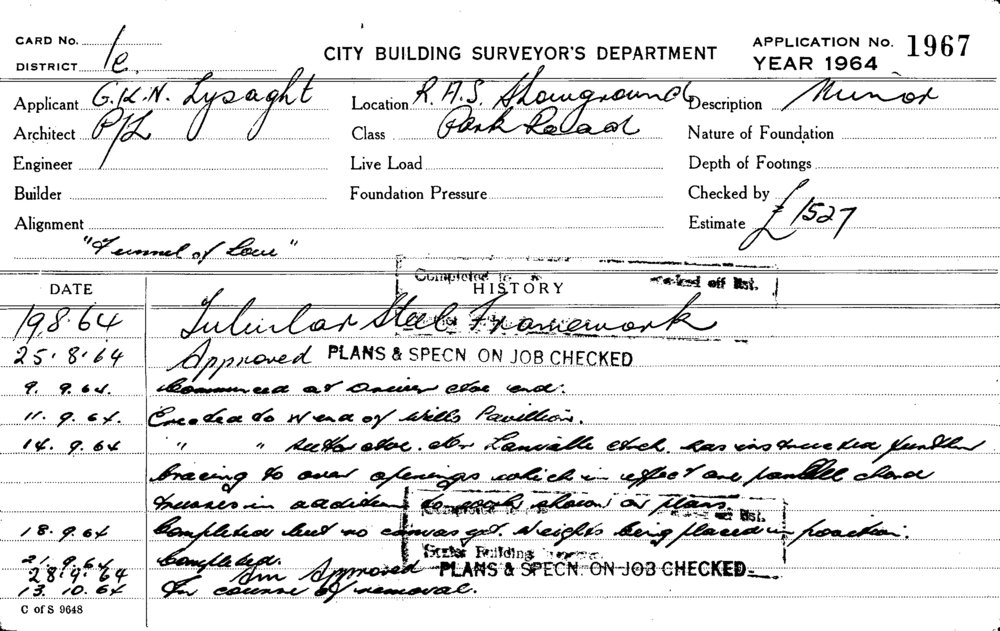 CARD No.
DISTRICT 1e
CITY BUILDING SURVEYOR'S DEPARTMENT
APPLICATION No. 1967
YEAR 1964
Applicant G.K.N. Lysaght
Location R.A.S. Showground
Description Minor
Architect P/L
Class Park Road
Nature of Foundation
Engineer
Live Load
Depth of Footings
Builder
Foundation Pressure
Checked by
Alignment
Estimate £1527
"Tunnel of Love"
Completed
off list.
DATE
HISTORY
19.8.64 Tubular Steel Framework
25.8.64 Approved PLANS & SPECN. ON JOB CHECKED
9. 9.64. Commenced at end.
11. 9.64. Erected to N end of Wills Pavillion.
14. 9.64 " " has instructed further
bracing to over openings which in effect are parallel chord
trusses in addition to work shown on plans.
Completed
list.
18. 9.64 Completed but no canvas yet. Weights being placed in position.
State Building
21. 9.64 Completed.
28.9.64 Am Approved PLANS & SPECN. ON JOB CHECKED
13. 10.64 In course of removal.
C of S 9648